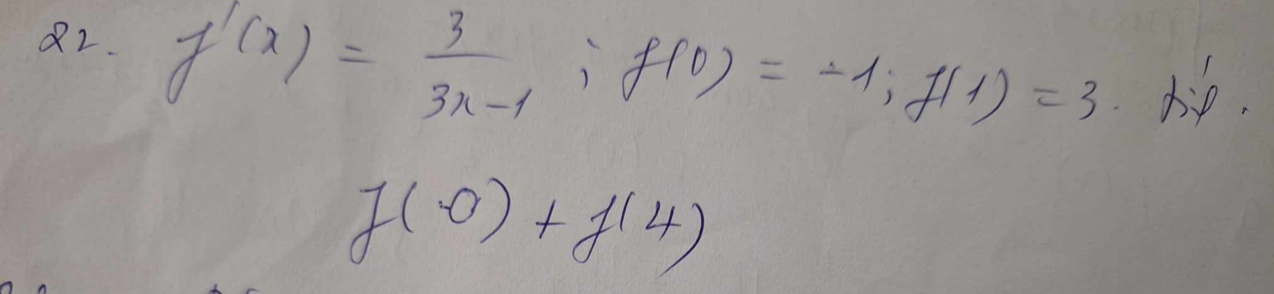 22. f'(x) = 3/(3x-1) ; f(0) = -1; f(1) = 3.
f(0) + f(4)